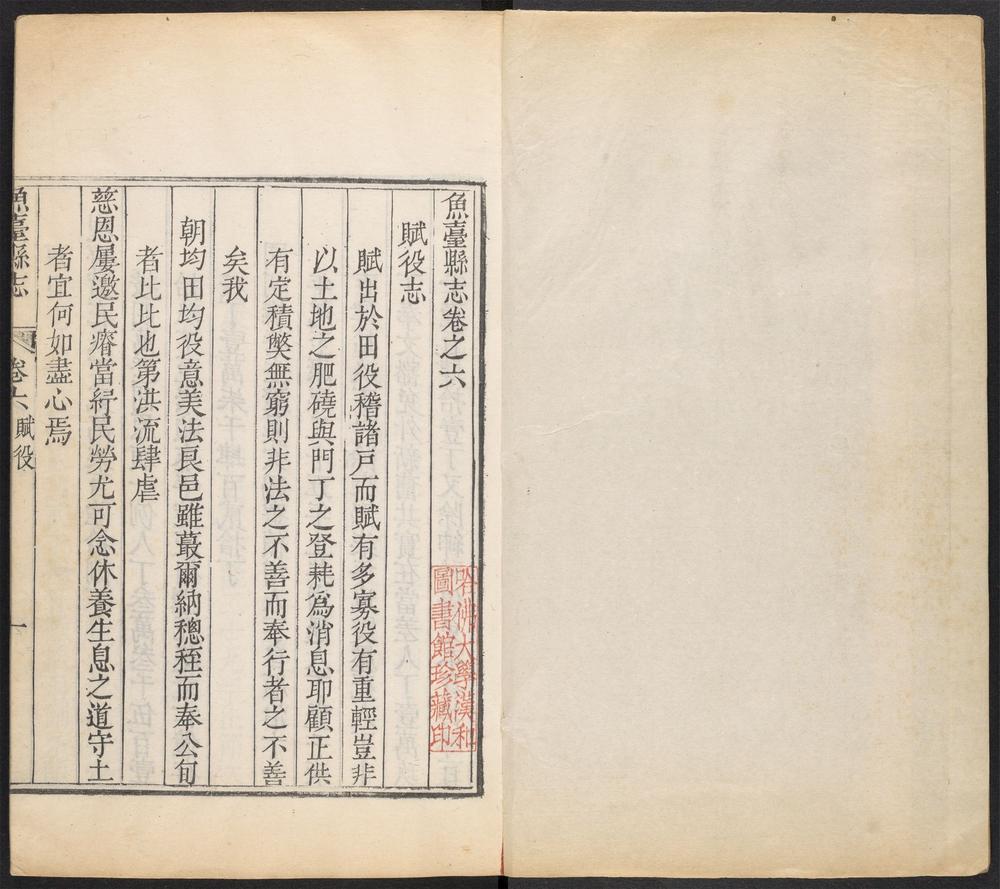 魚臺縣志卷之六
賦役志
賦出於田役稽諸戶而賦有多寡役有重輕豈非
以土地之肥磽與門丁之登耗爲消息耶顧正供
有定積獘無窮則非法之不善而奉行者之不善
矣我
朝均田均役意美法良邑雖蕞爾納總秷而奉公旬
者比比也第洪流肆虐
慈恩屢邀民瘠當紓民勞尤可念休養生息之道守土
者宜何如盡心焉
魚臺縣志 卷六 賦役 一
哈佛大學漢和
圖書館珍藏印